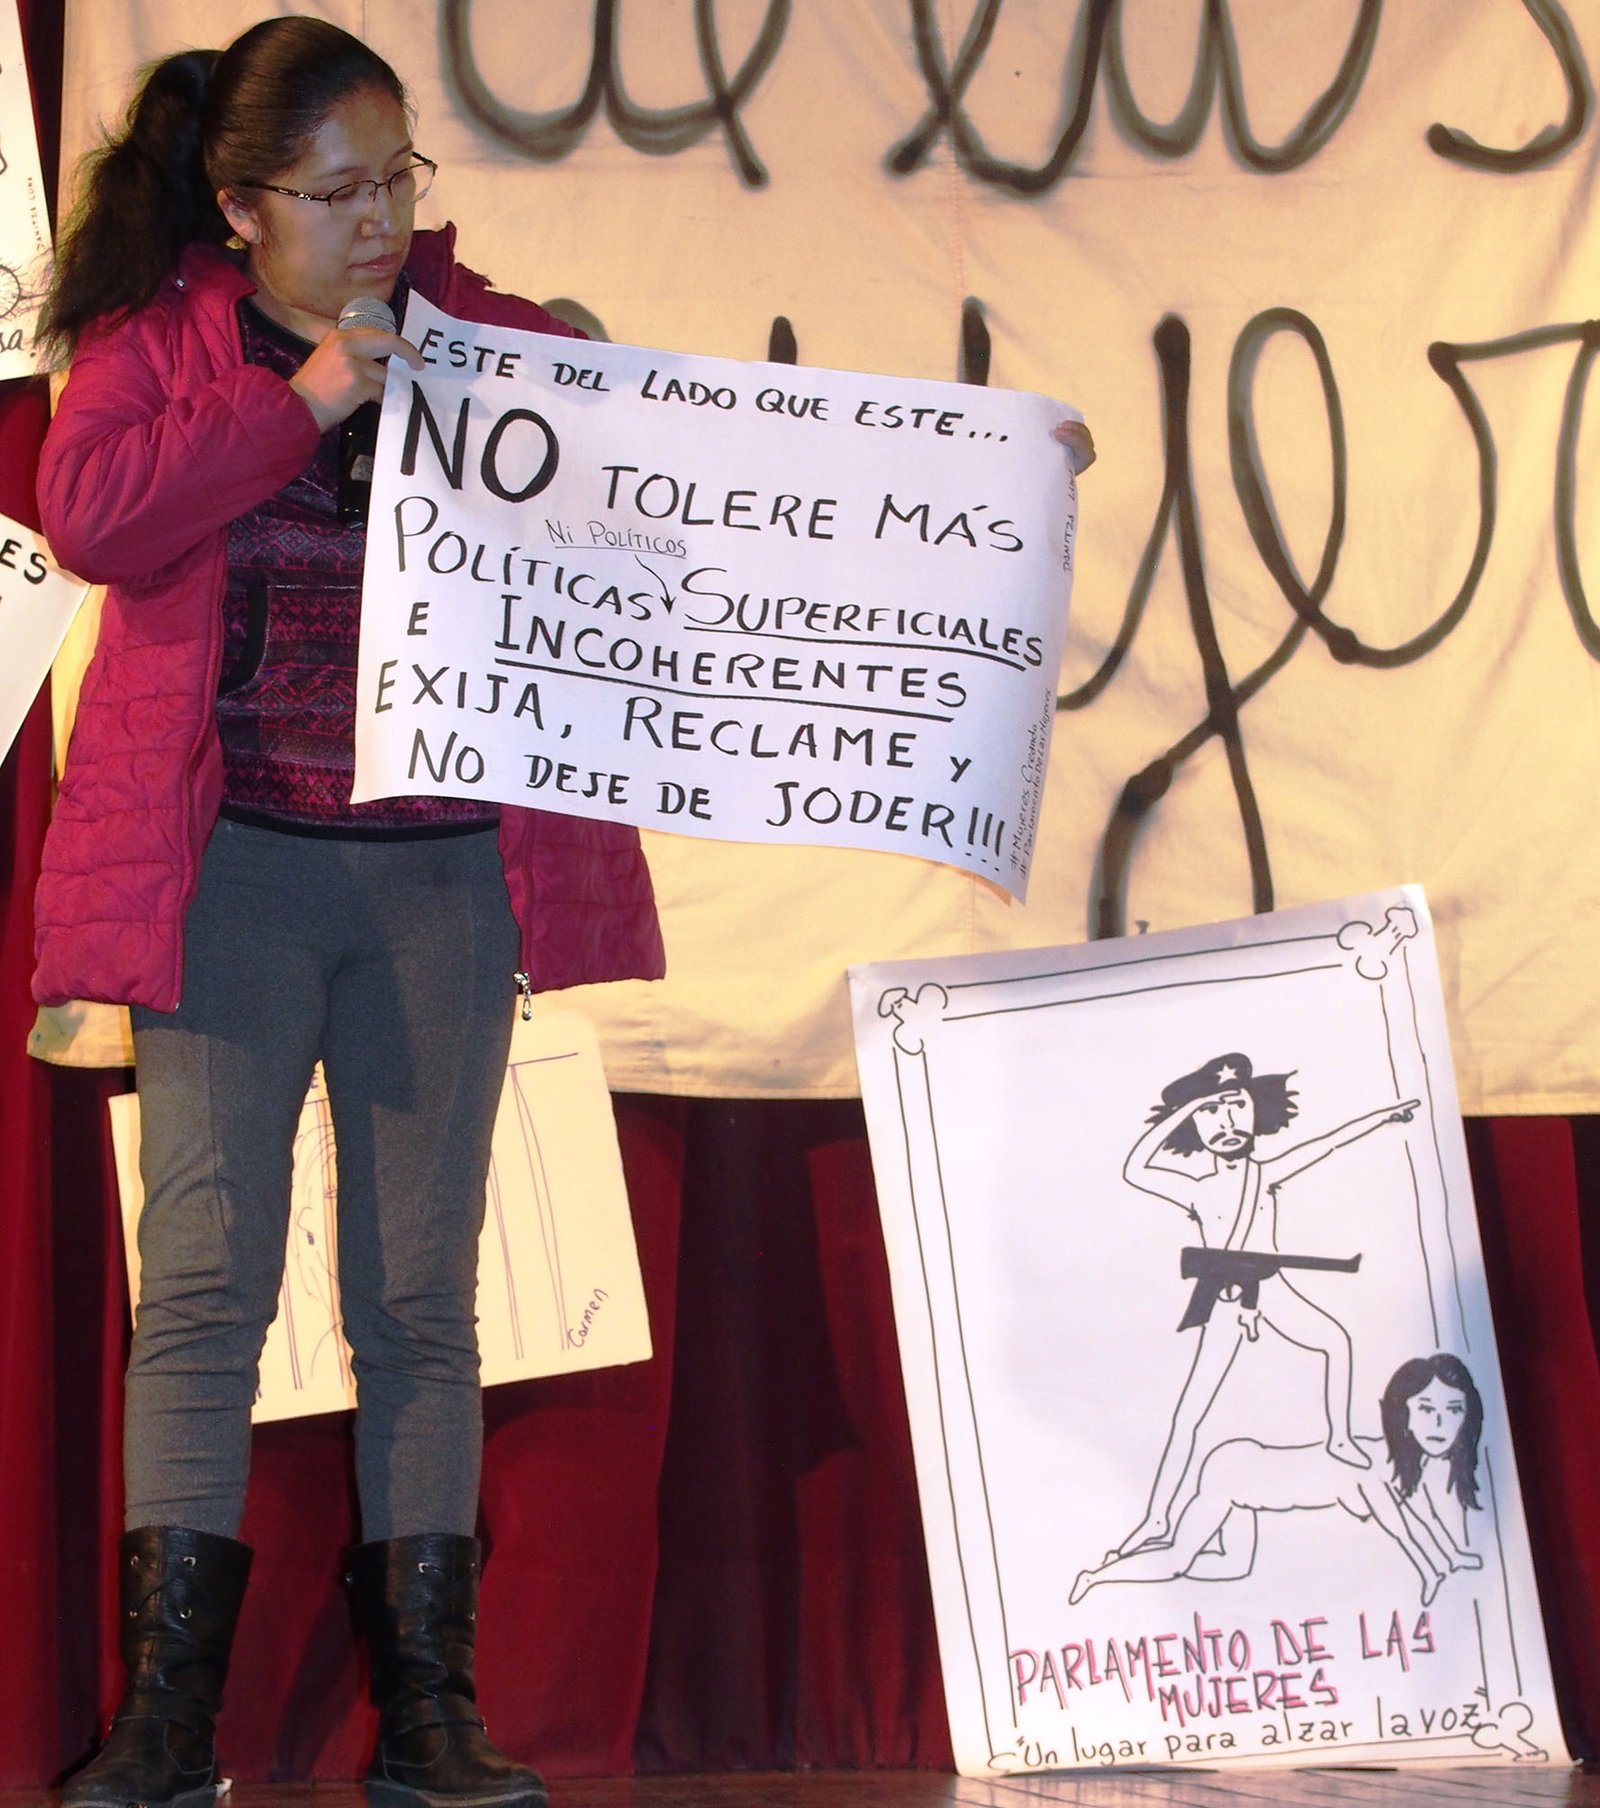 de las
ESTE DEL LADO QUE ESTE...
NO TOLERE MÁS
Ni POLÍTICOS
POLÍTICAS SUPERFICIALES
E INCOHERENTES
EXIJA, RECLAME Y
NO DEJE DE JODER!!!
DANITZA LUNA
#Mujeres Creando
#Parlamento De Las Mujeres
sa!
ES
Carmen
PARLAMENTO DE LAS
MUJERES
"Un lugar para alzar la voz"